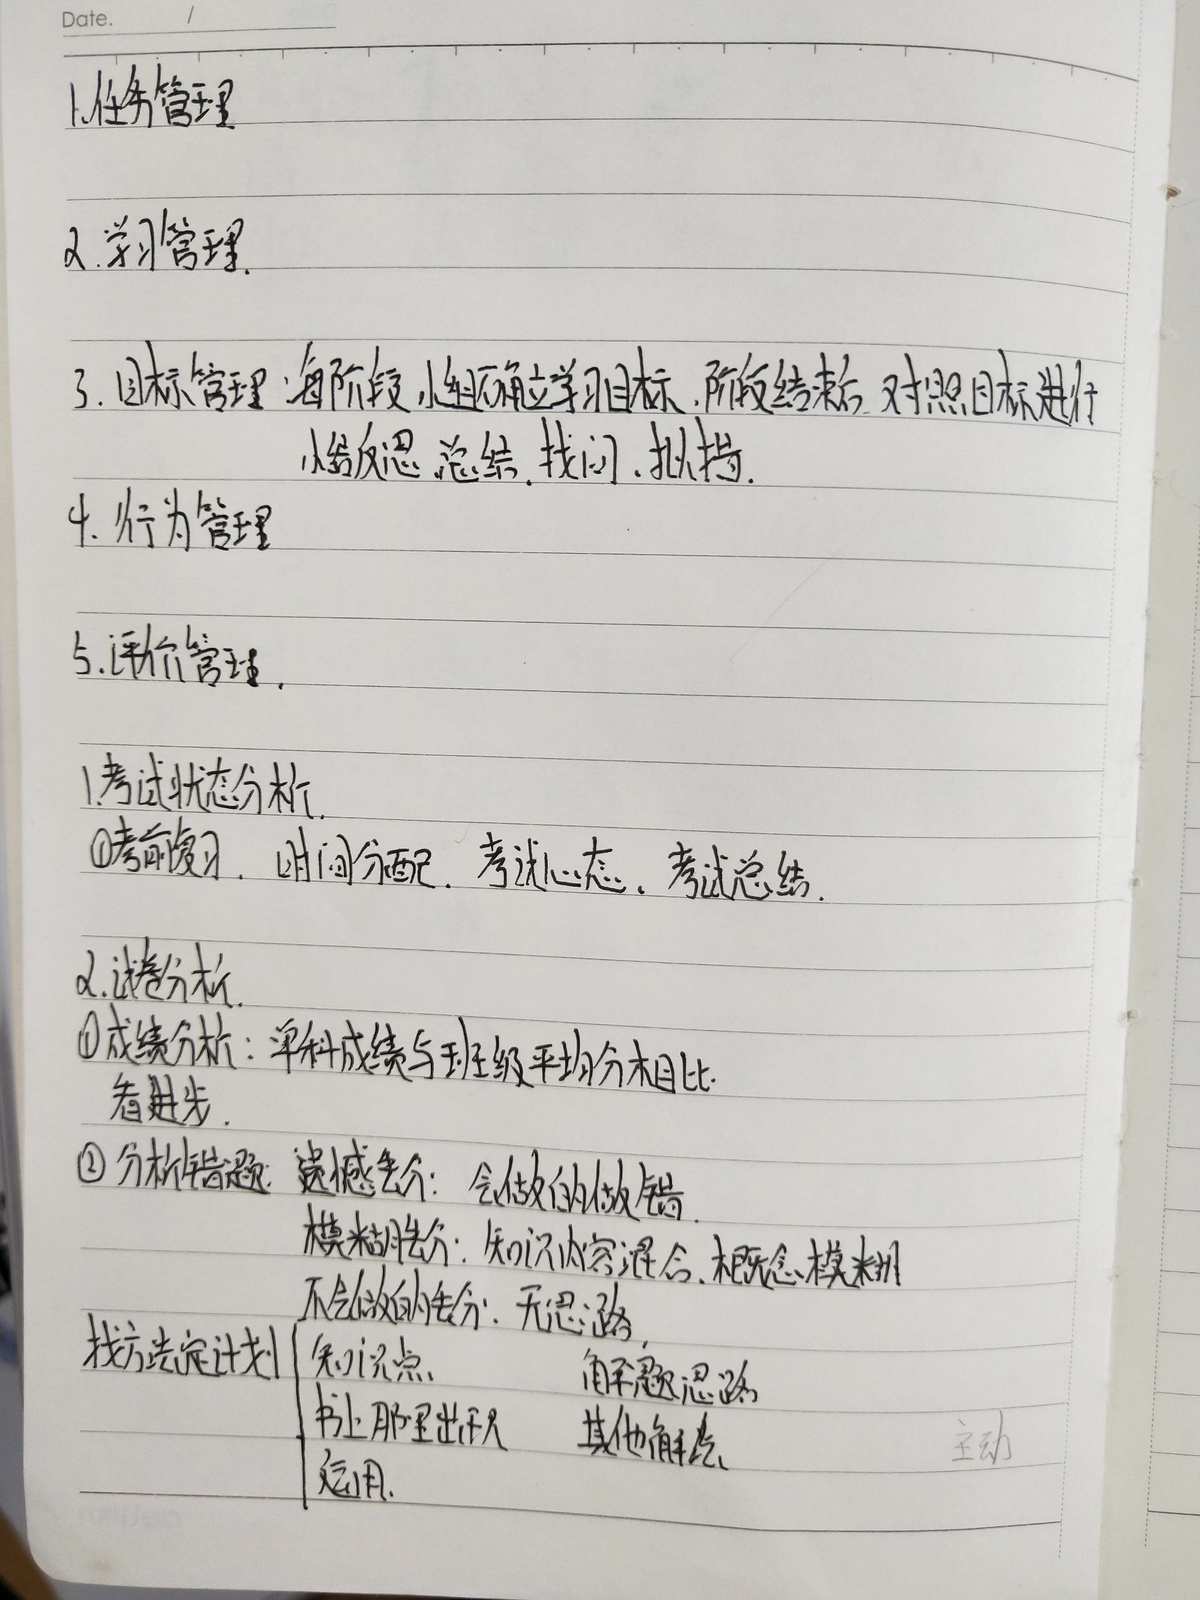 Date. /
1.任务管理
2.学习管理.
3.目标管理:每阶段,小组确立学习目标.阶段结束后.对照目标进行
小结反思.总结.找问、拟措.
4.行为管理
5.评价管理.
1.考试状态分析.
①考前复习. 时间分配. 考试心态. 考试总结.
2.试卷分析.
①成绩分析:单科成绩与班级平均分相比.
看进步.
②分析错题: 遗憾丢分: 会做的做错.
模糊丢分: 知识内容混合.概念模糊
不会做的丢分: 无思路.
找方法定计划 知识点. 解题思路
书上那里出现 其他解法.
运用. 主动